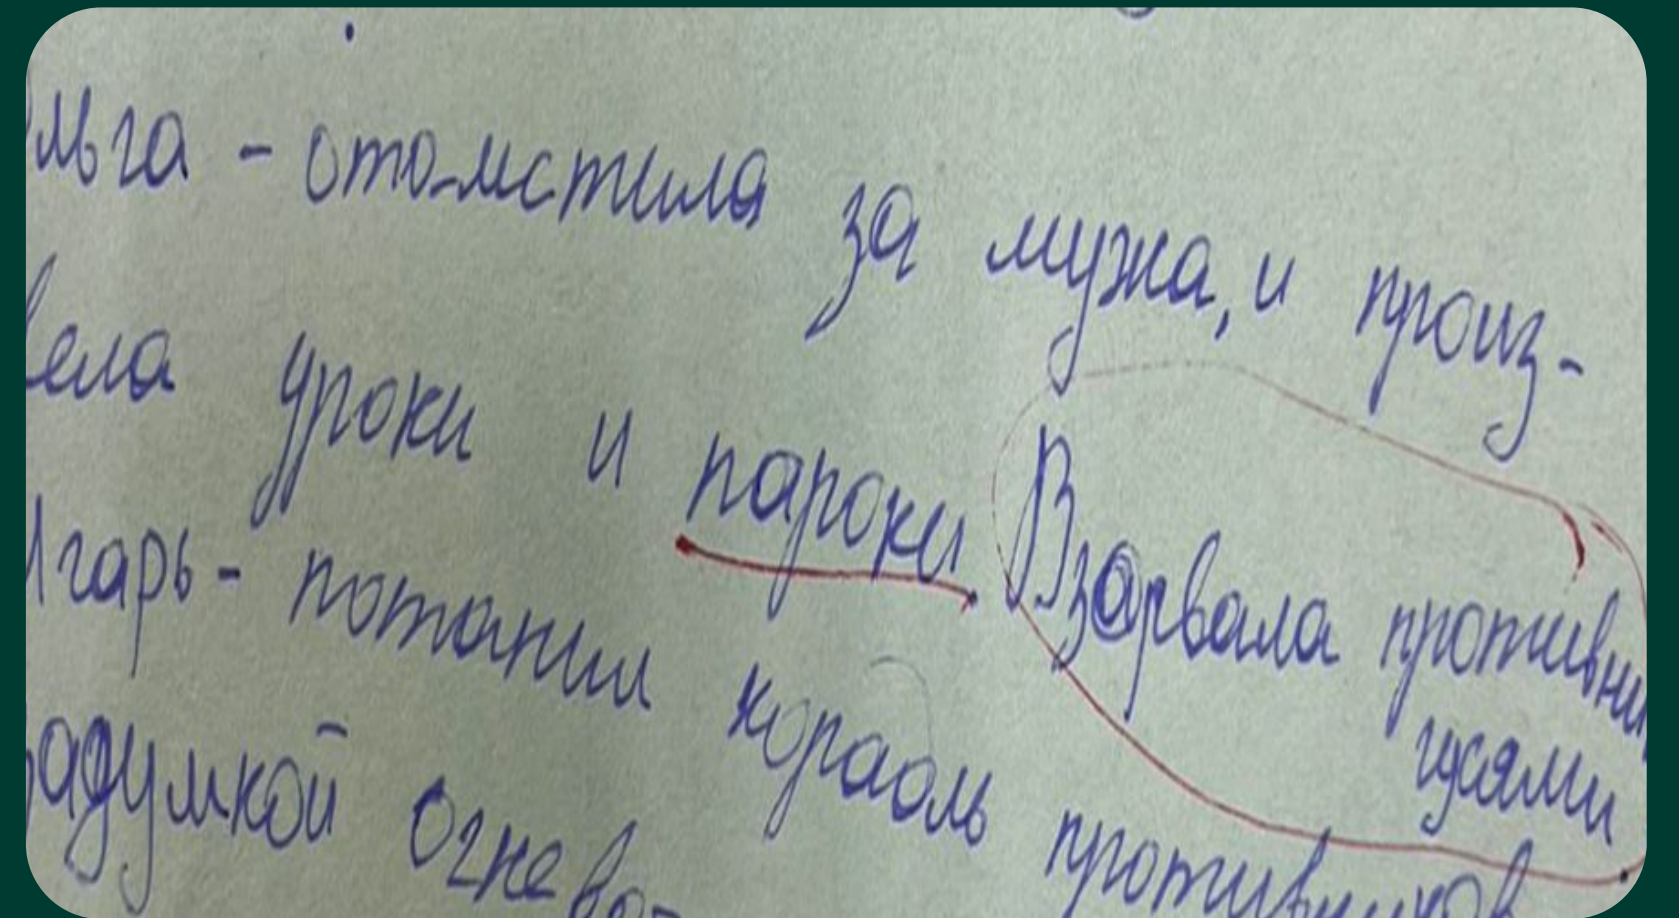 льга - отомстила за мужа, и произ-
вела уроки и пароки Взарвала противни
гусями
Игарь - потопил корабль противников
задумкой огнево-